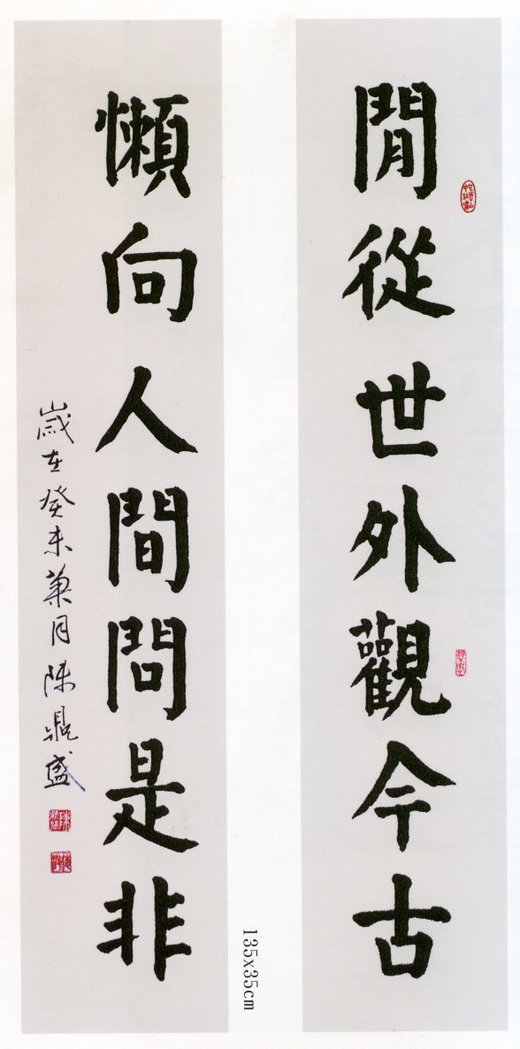 閒從世外觀今古
懶向人間問是非
歲在癸未菊月陳鼎盛
135x35cm